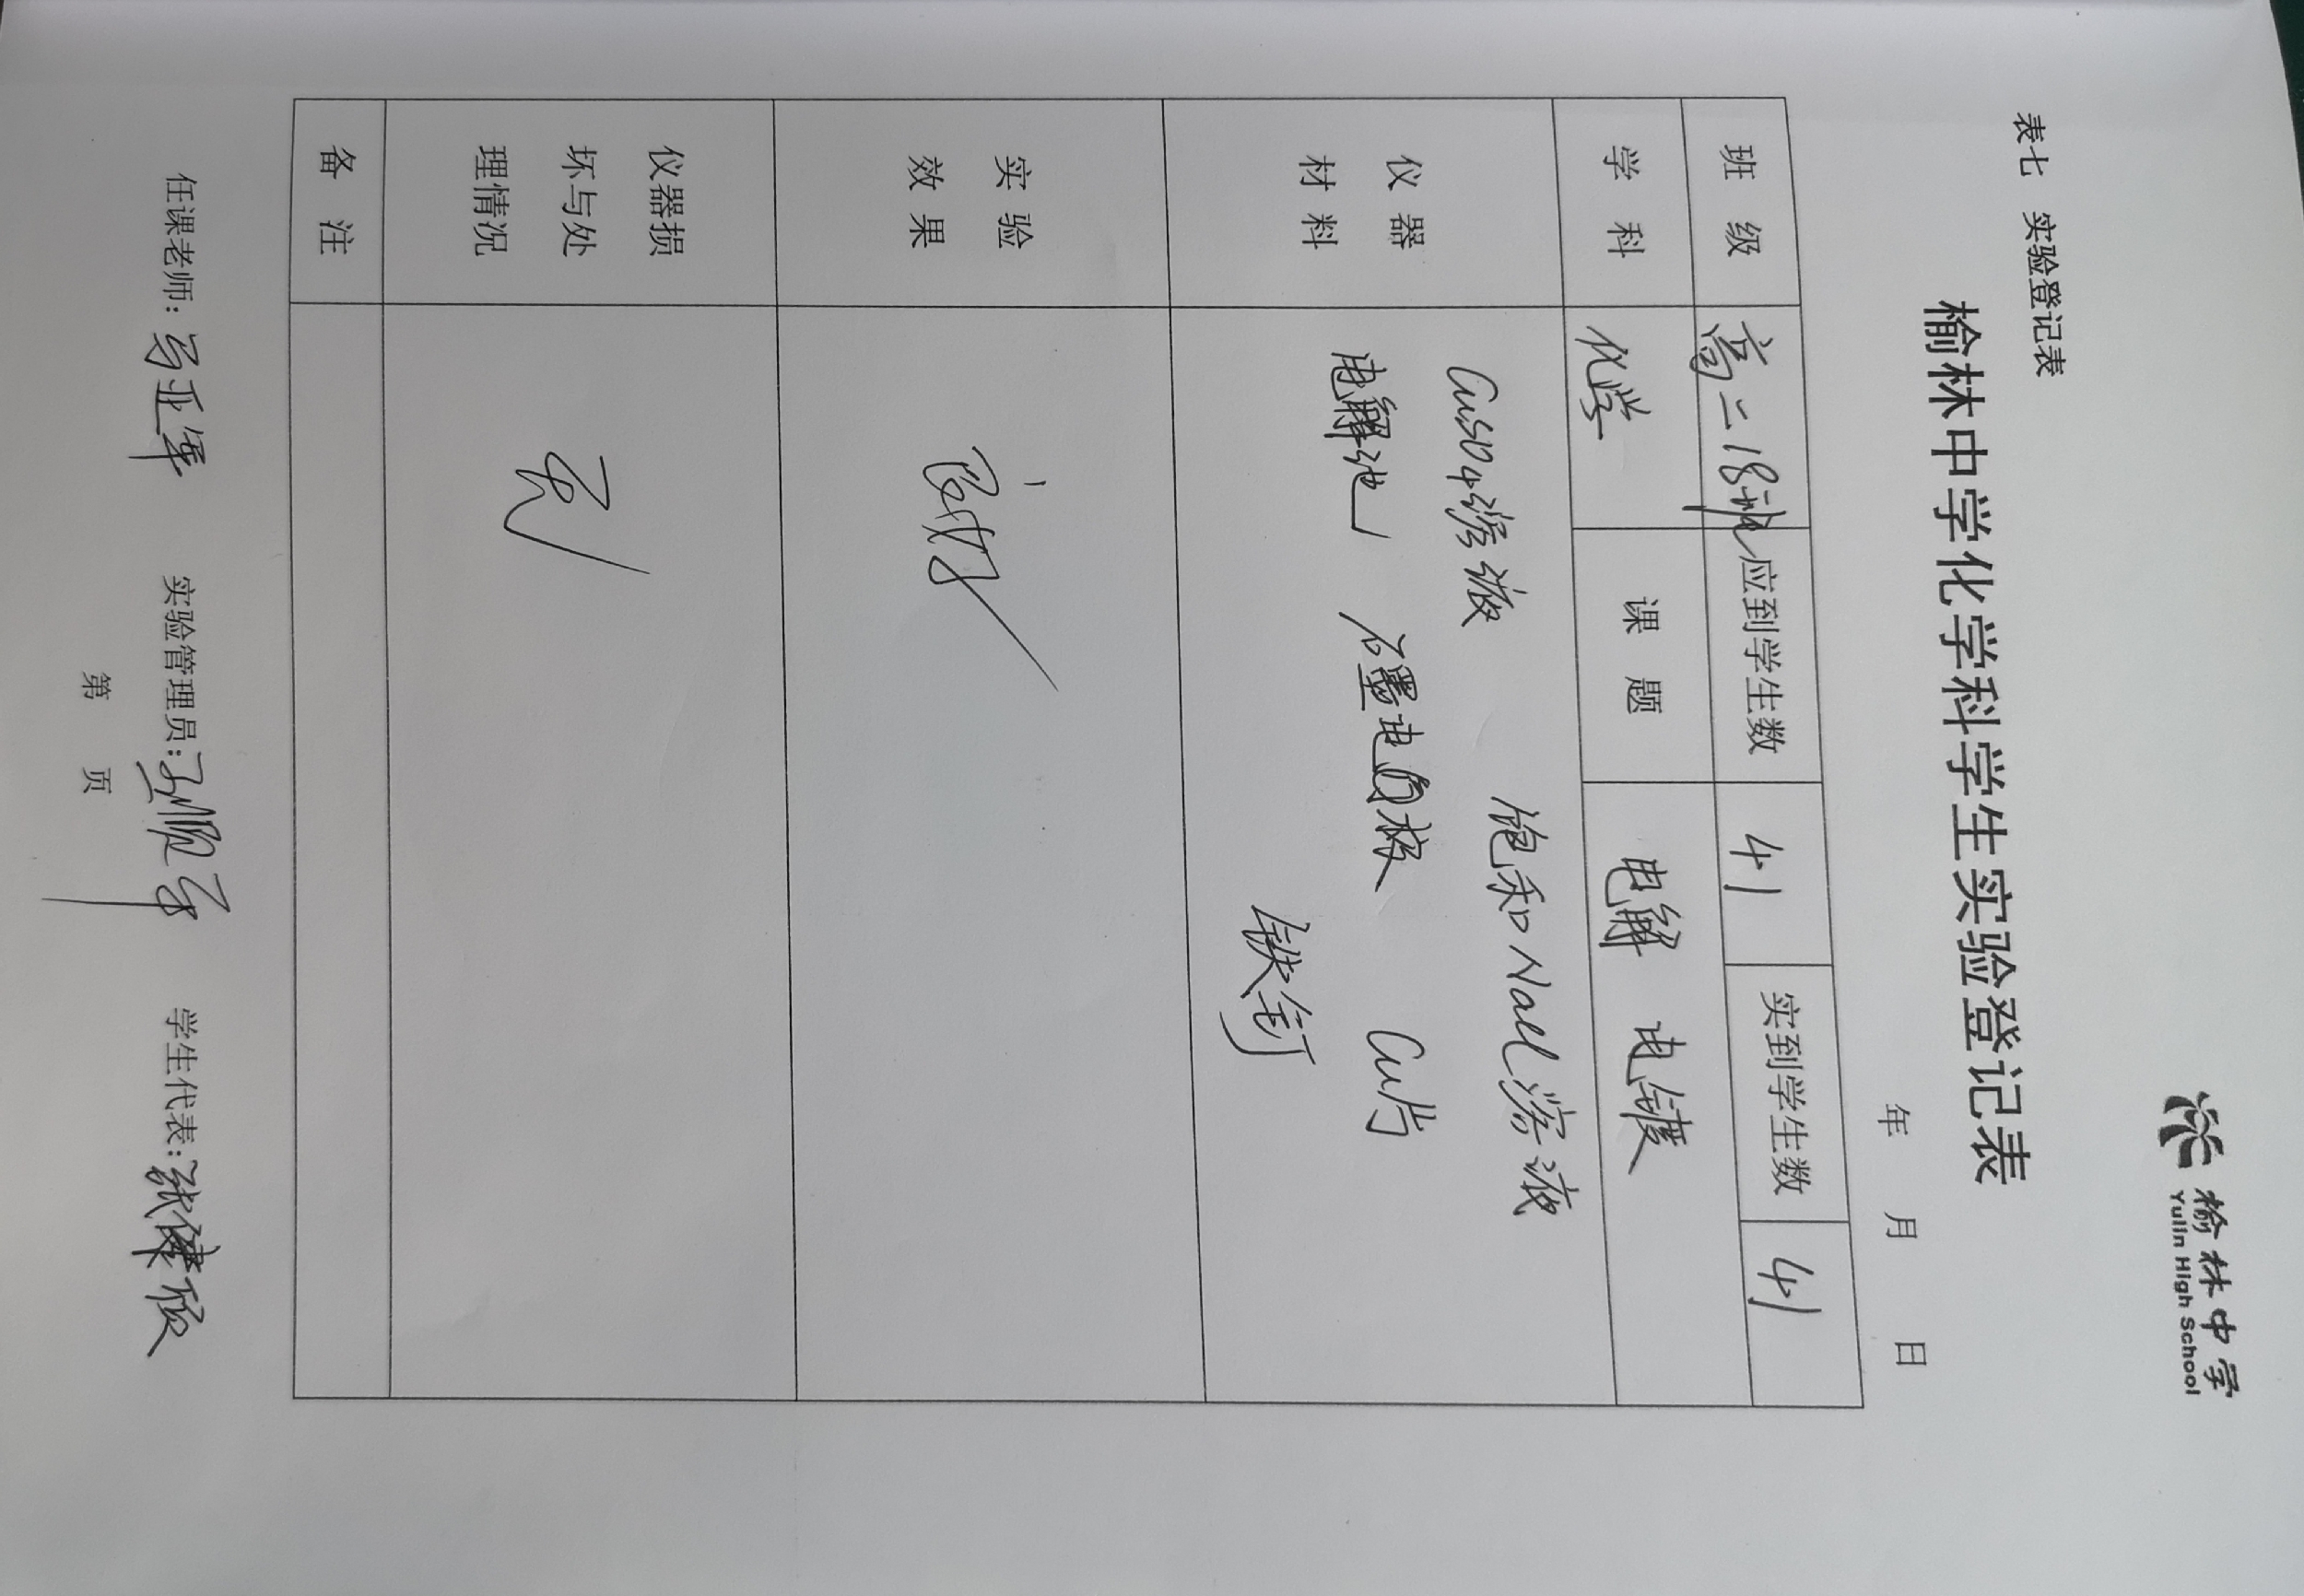 榆林中学
Yulin High School
表七 实验登记表
榆林中学化学科学生实验登记表
年 月 日
班 级 高二18班 应到学生数 41 实到学生数 41
学 科 化学 课 题 电解 电镀
仪 器
材 料
CuSO4溶液 饱和NaCl溶液
电解池 石墨电极 Cu片
铁钉
实 验
效 果
良好
仪器损
坏与处
理情况
无
备 注
任课老师: 马亚军 实验管理员: 学生代表: 张健硕
第 页